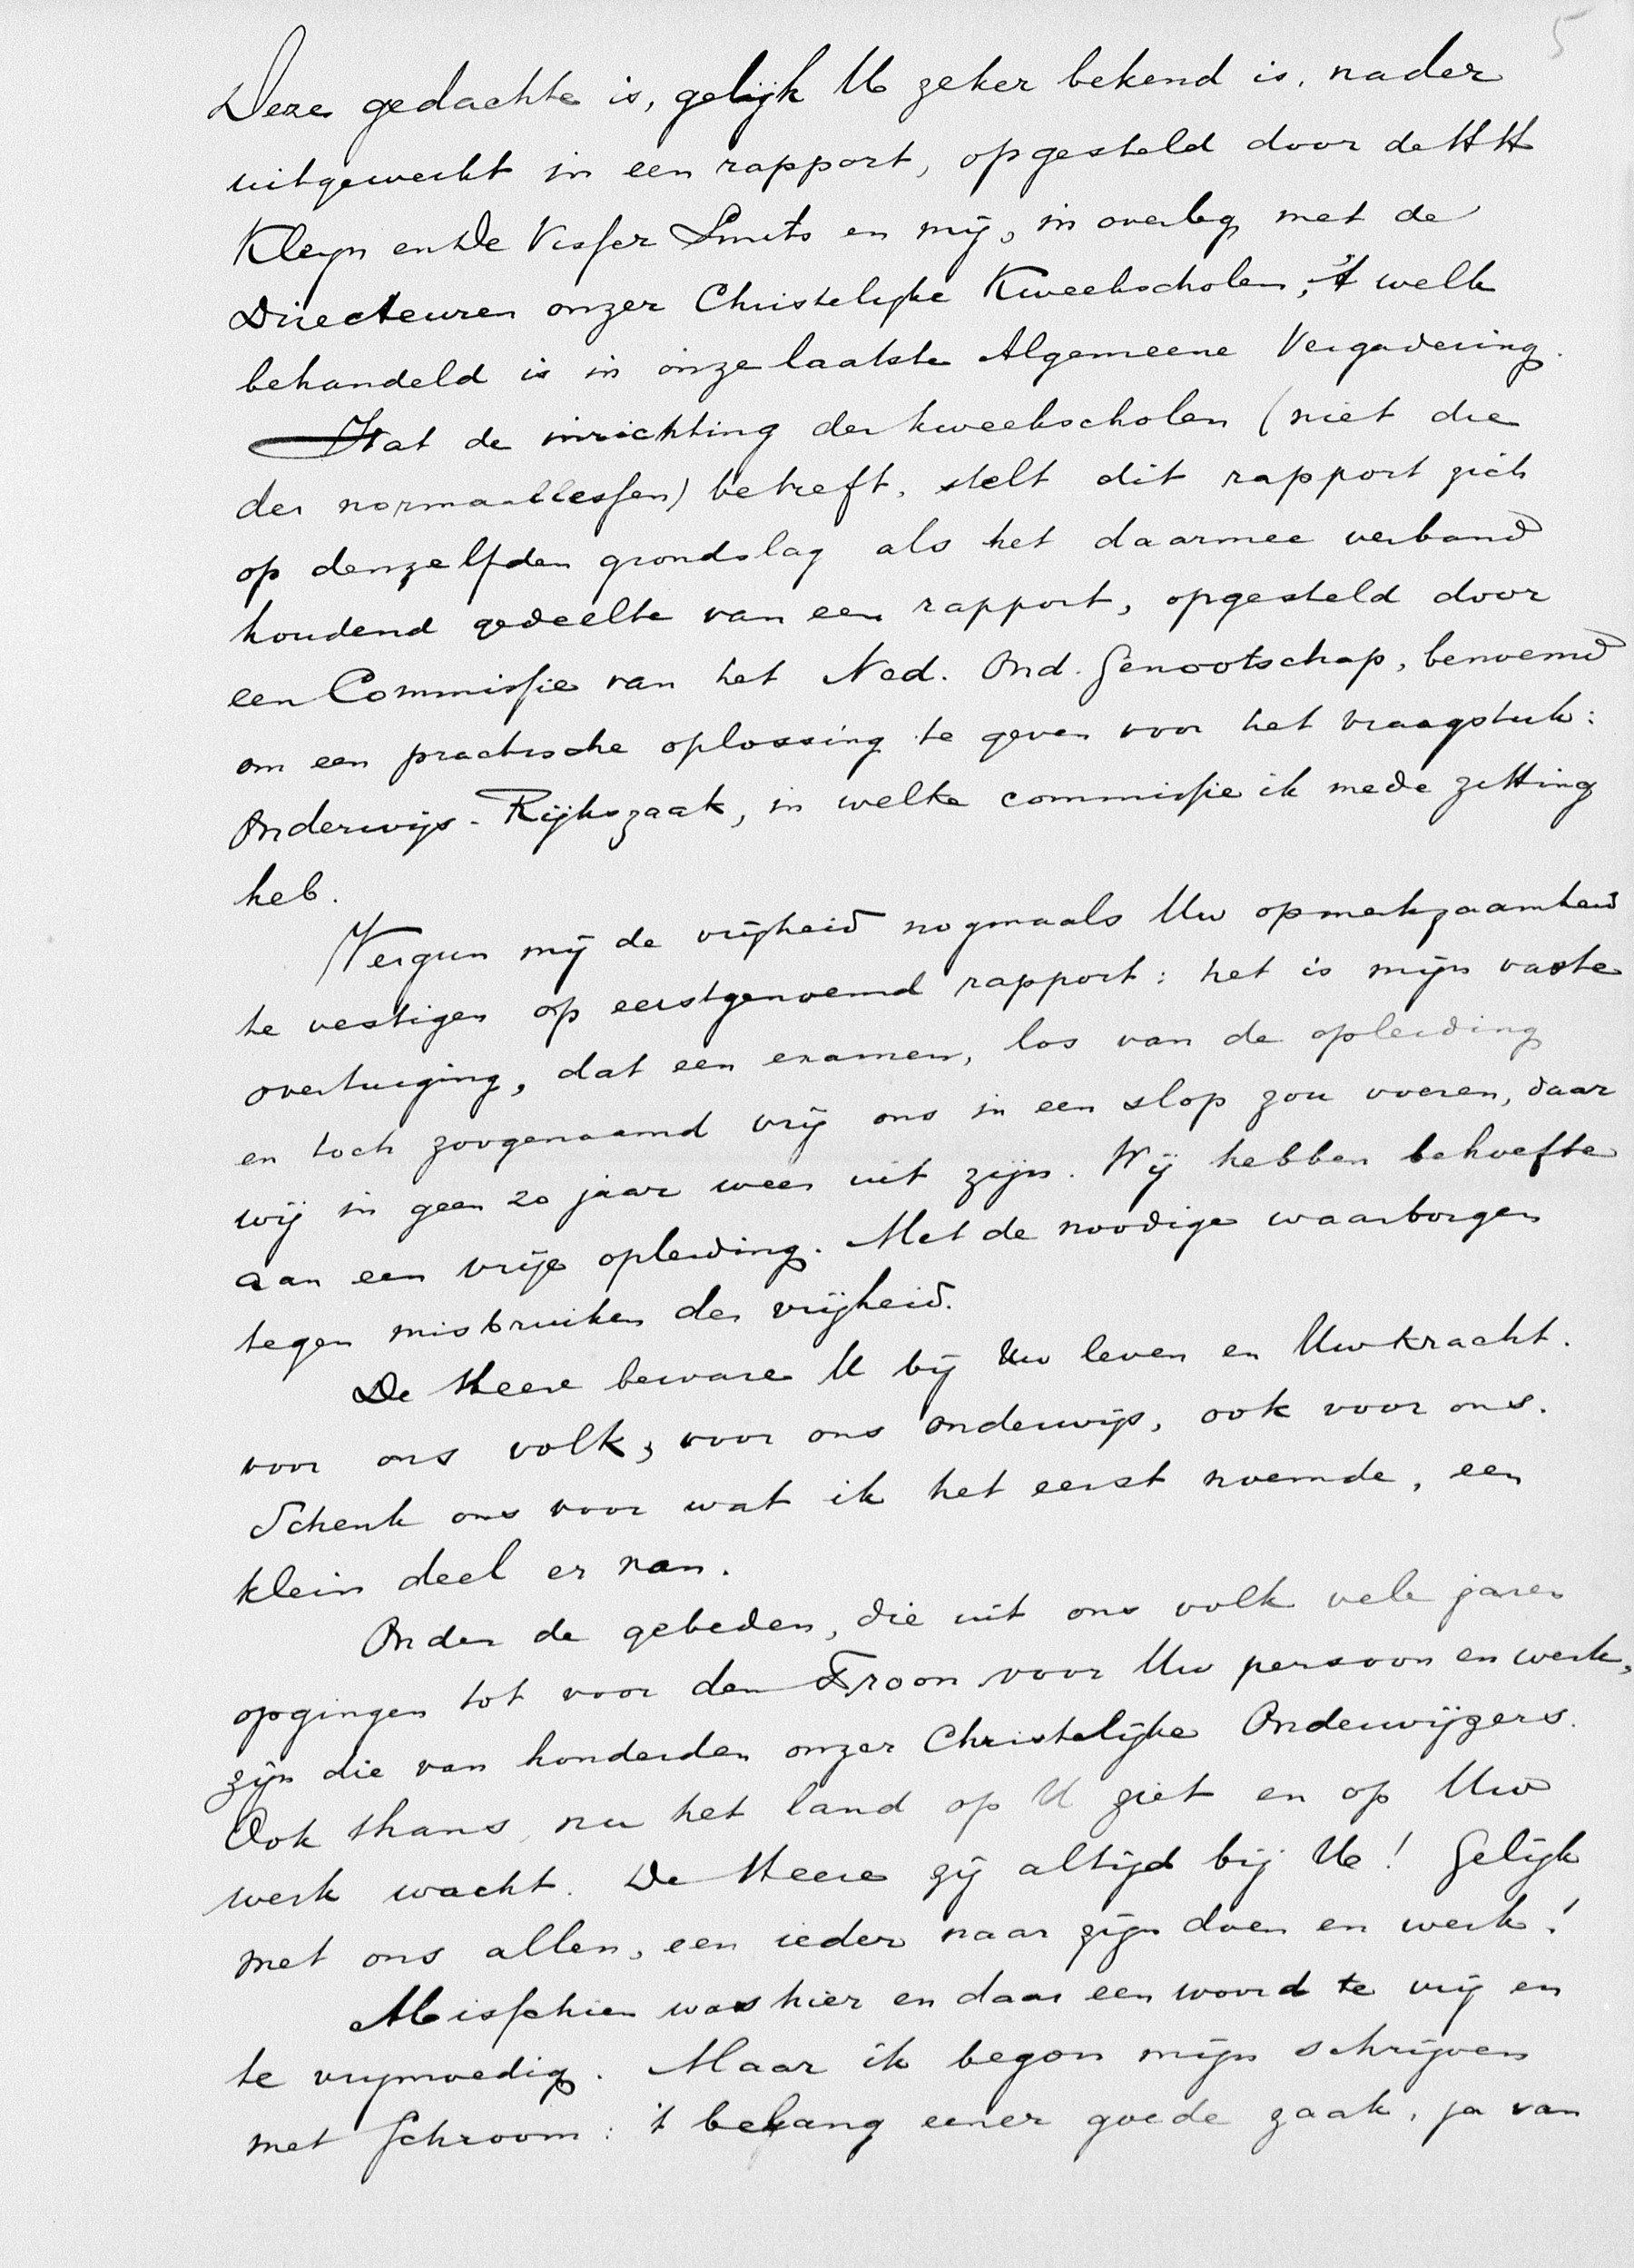 5
Deze gedachte is, gelijk U zeker bekend is, nader
uitgewerkt in een rapport, opgesteld door de HH
Kleyn en De Visser Smits en mij, in overleg met de
Directeuren onzer Christelijke Kweekscholen, 't welk
behandeld is in onze laatste Algemeene Vergadering.
Wat de inrichting der kweekscholen (niet die
der normaallessen) betreft, stelt dit rapport zich
op denzelfden grondslag als het daarmee verband
houdend gedeelte van een rapport, opgesteld door
een Commissie van het Ned. Ond. Genootschap, benoemd
om een practische oplossing te geven voor het vraagstuk:
Onderwijs-Rijkszaak, in welke commissie ik mede zitting
heb.
Vergun mij de vrijheid nogmaals Uw opmerkzaamheid
te vestigen op eerstgenoemd rapport: het is mijn vaste
overtuiging, dat een examen, los van de opleiding
en toch zoogenaamd vrij ons in een slop zou voeren, daar
wij in geen 20 jaar weer uit zijn. Wij hebben behoefte
aan een vrije opleiding. Met de noodige waarborgen
tegen misbruiken der vrijheid.
De Heere beware U bij Uw leven en Uw kracht.
voor ons volk, voor ons onderwijs, ook voor ons.
Schenk ons voor wat ik het eerst noemde, een
klein deel er van.
Onder de gebeden, die uit ons volk vele jaren
opgingen tot voor den Troon voor Uw persoon en werk,
zijn die van honderden onzer Christelijke Onderwijzers.
Ook thans, nu het land op U ziet en op Uw
werk wacht. De Heere zij altijd bij U! Gelijk
met ons allen, een ieder naar zijn doen en werk!
Misschien was hier en daar een woord te vrij en
te vrijmoedig. Maar ik begon mijn schrijven
met schroom: 't belang eener goede zaak, ja van